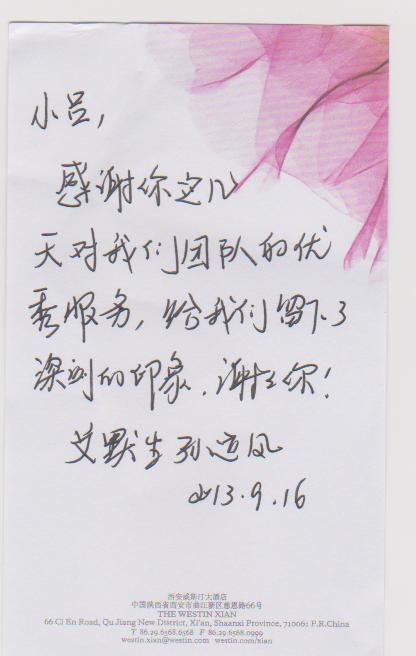 小吕,
感谢你这几
天对我们团队的优
秀服务,给我们留下了
深刻的印象,谢谢你!
艾默生 孙
2013.9.16
西安威斯汀大酒店
中国陕西省西安市曲江新区慈恩路66号
THE WESTIN XIAN
66 Ci En Road, Qu Jiang New District, Xi'an, Shaanxi Province, 710061 P.R.China
T 86.29.6568.6568 F 86.29.6568.0999
westin.xian@westin.com westin.com/xian